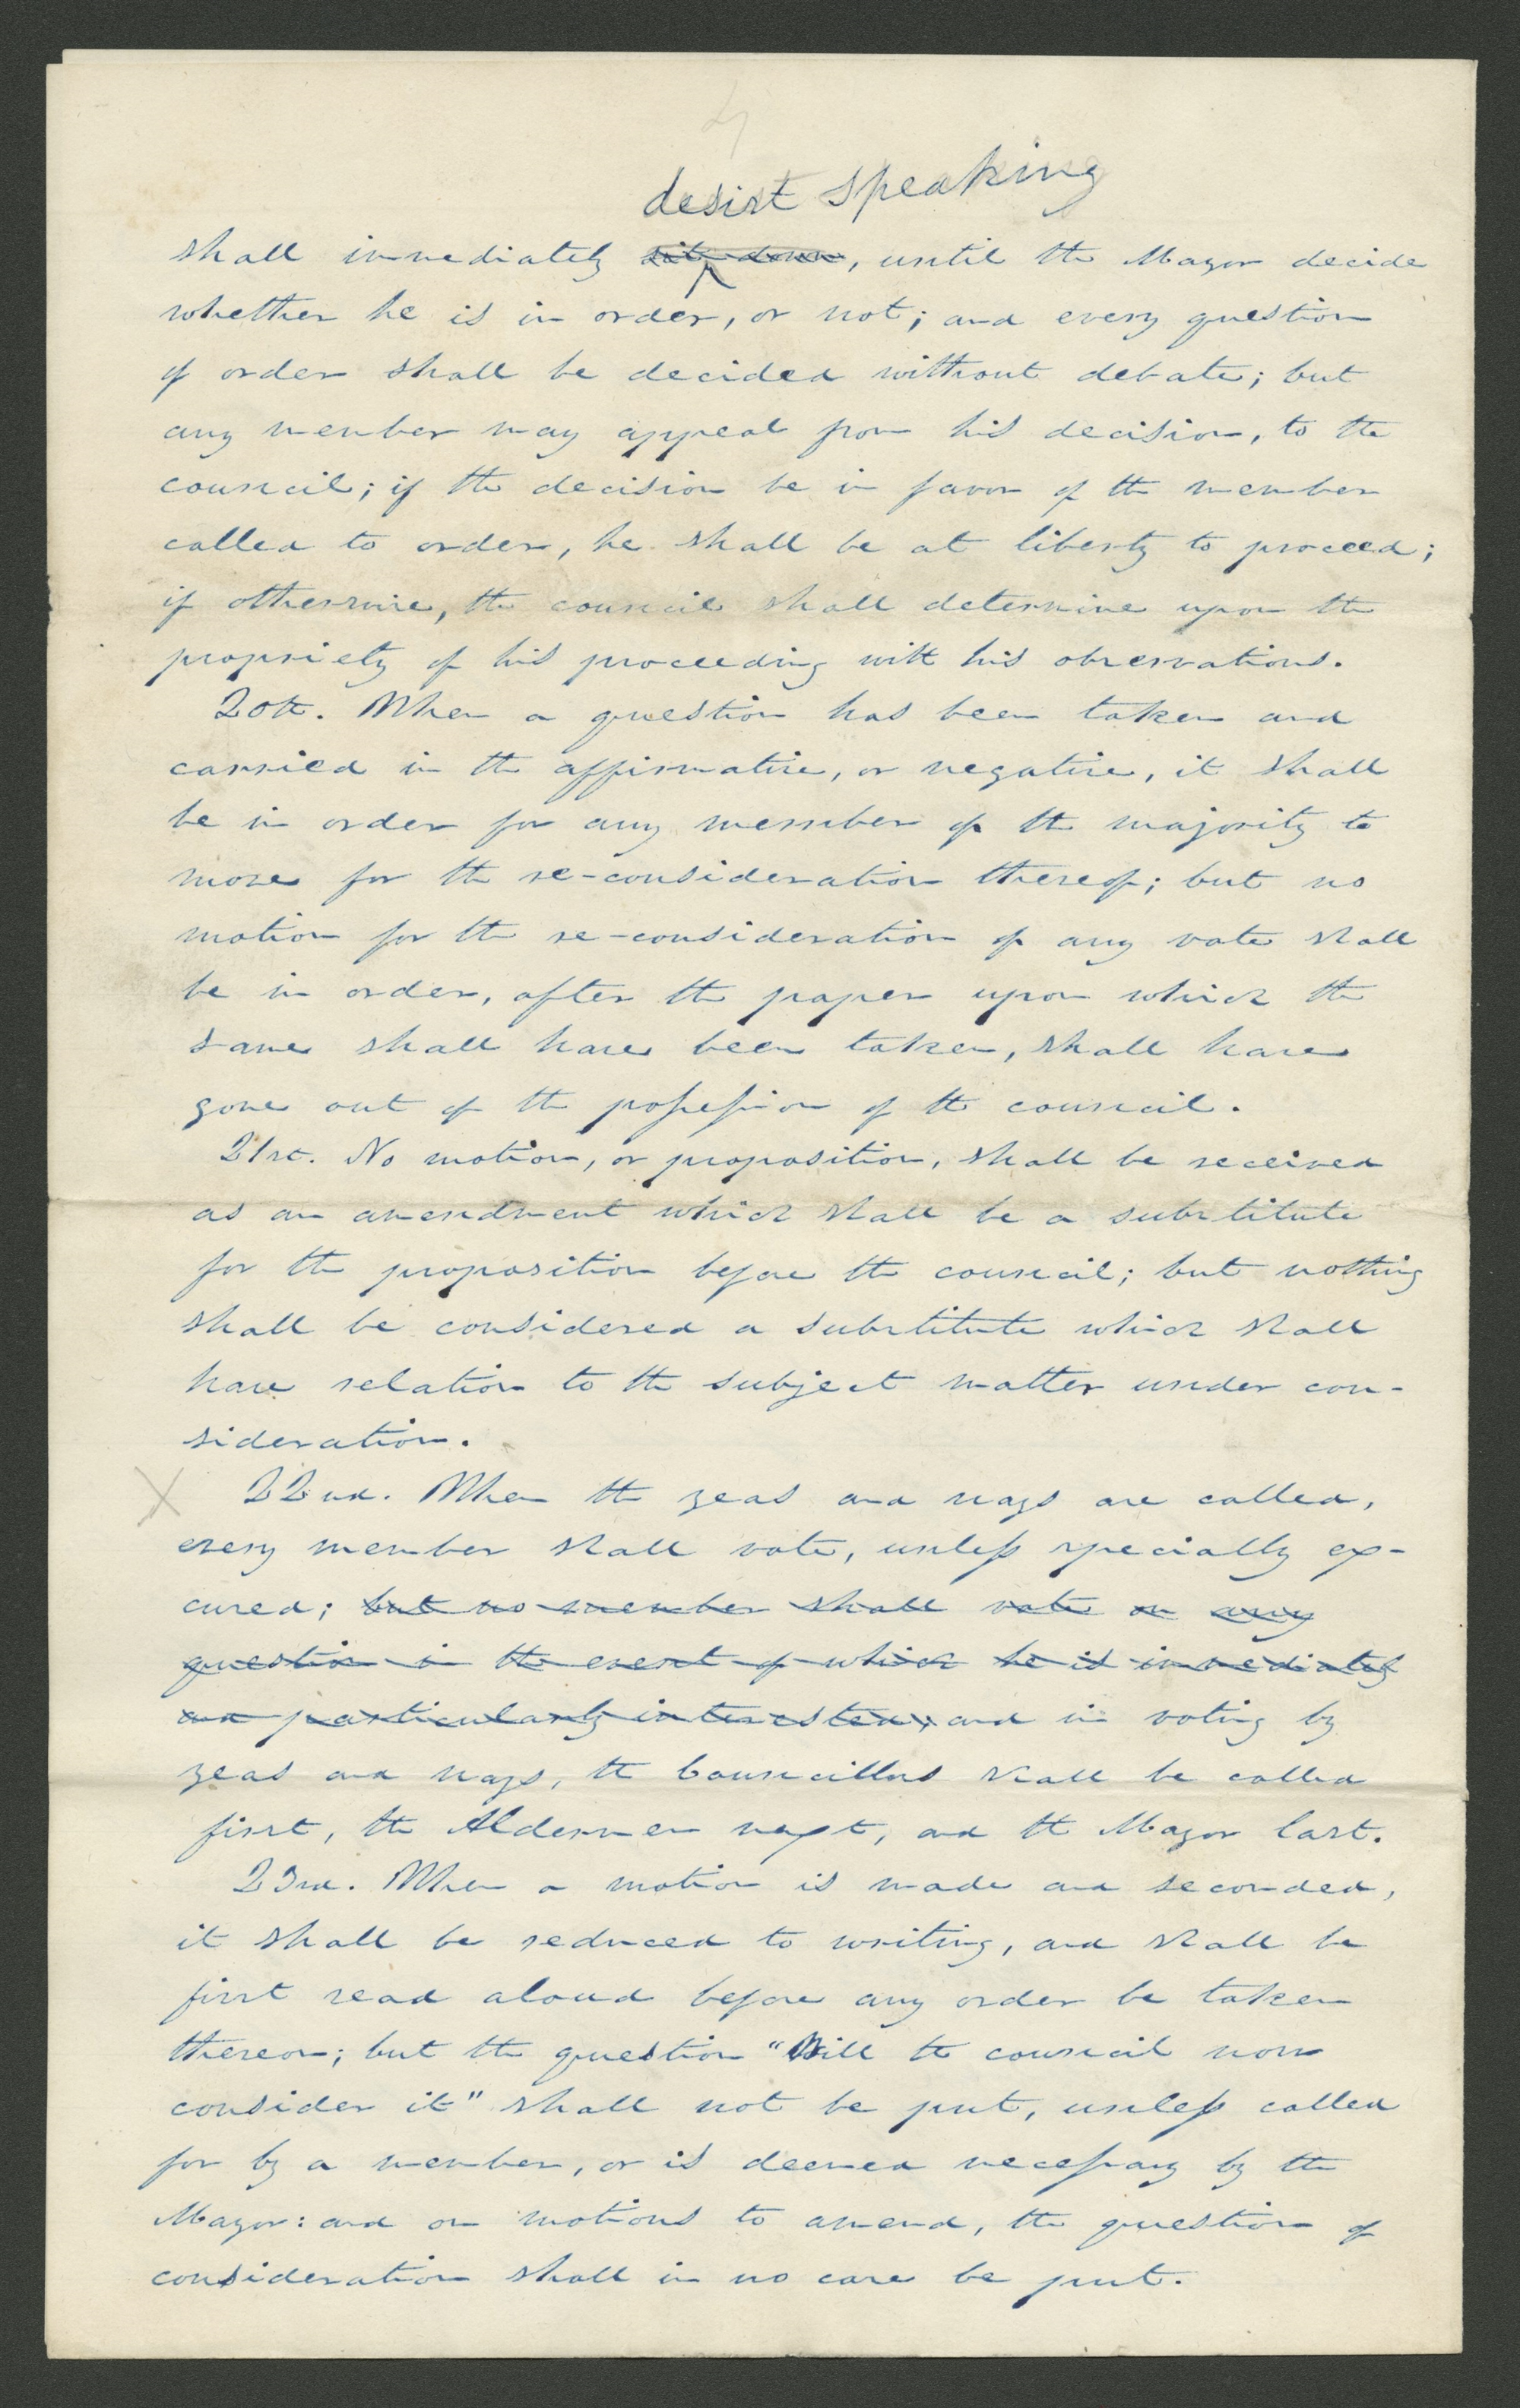 4
desist speaking
shall immediately sit down, until the Mayor decide
whether he is in order, or not; and every question
of order shall be decided without debate; but
any member may appeal from his decision, to the
council; if the decision be in favor of the member
called to order, he shall be at liberty to proceed;
if otherwise, the council shall determine upon the
propriety of his proceeding with his observations.
20th. When a question has been taken and
carried in the affirmative, or negative, it shall
be in order for any member of the majority to
move for the re-consideration thereof; but no
motion for the re-consideration of any vote shall
be in order, after the paper upon which the
same shall have been taken, shall have
gone out of the possession of the council.
21st. No motion, or proposition, shall be received
as an amendment which shall be a substitute
for the proposition before the council; but nothing
shall be considered a substitute which shall
have relation to the subject matter under con-
sideration.
X 22nd. When the yeas and nays are called,
every member shall vote, unless specially ex-
cused; but no member shall vote on any
question in the event of which he is immediately
and particularly interested; and in voting by
yeas and nays, the Councillors shall be called
first, the Aldermen next, and the Mayor last.
23rd. When a motion is made and seconded,
it shall be reduced to writing, and shall be
first read aloud before any order be taken
thereon; but the question "Will the council now
consider it" shall not be put, unless called
for by a member, or is deemed necessary by the
Mayor: and on motions to amend, the question of
consideration shall in no case be put.